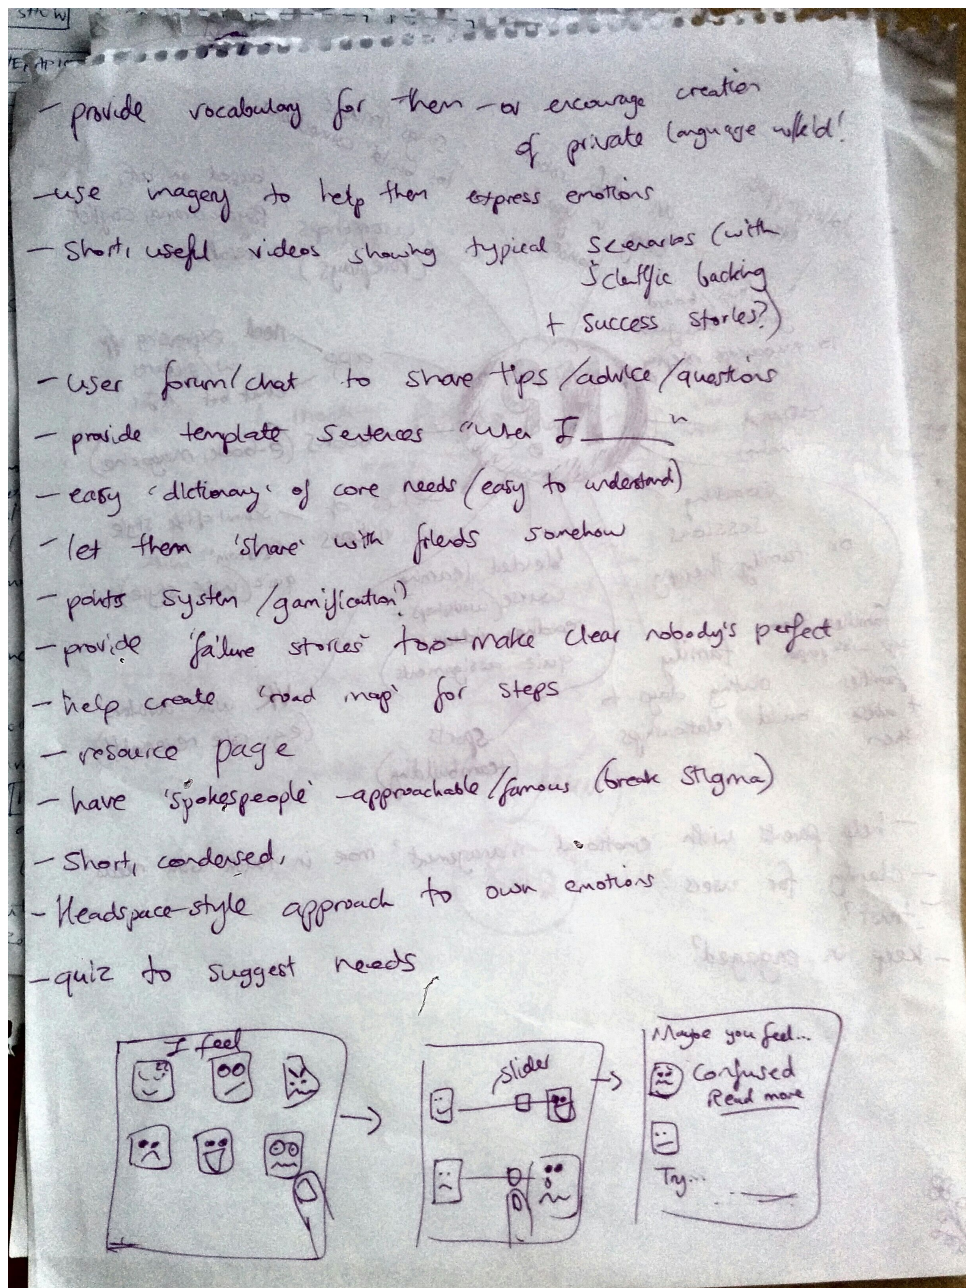 - provide vocabulary for them - or encourage creation
of private language w/kid!
- use imagery to help them express emotions
- Short, useful videos showing typical scenarios (with
scientific backing
+ success stories?)
- user forum/chat to share tips/advice/questions
- provide template sentences "when I ______"
- easy 'dictionary' of core needs (easy to understand)
- let them 'share' with friends somehow
- points system/gamification?
- provide 'failure stories' too - make clear nobody's perfect
- help create 'road map' for steps
- resource page
- have 'spokespeople' - approachable/famous (break stigma)
- Short, condensed,
- Headspace-style approach to own emotions
- quiz to suggest needs
I feel
slider
Maybe you feel...
Confused
Read more
Try...